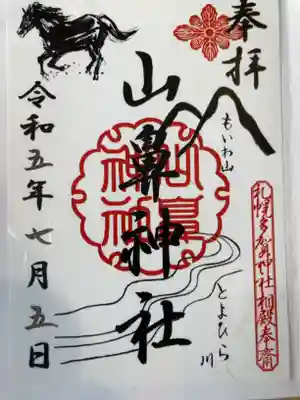 奉拝
もいわ山
山鼻神社
札幌多賀神社相殿奉斎
とよひら川
令和五年七月五日